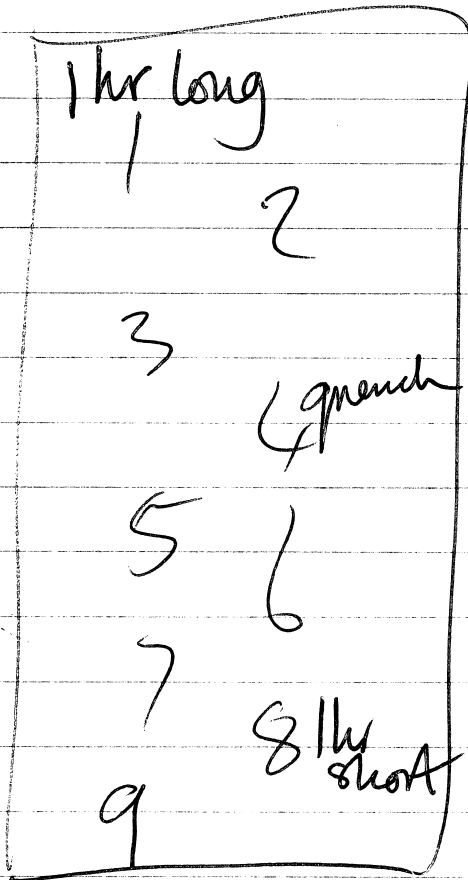 1 hr long
1
2
3
4 quench
5
6
7
8 1hr
short
9